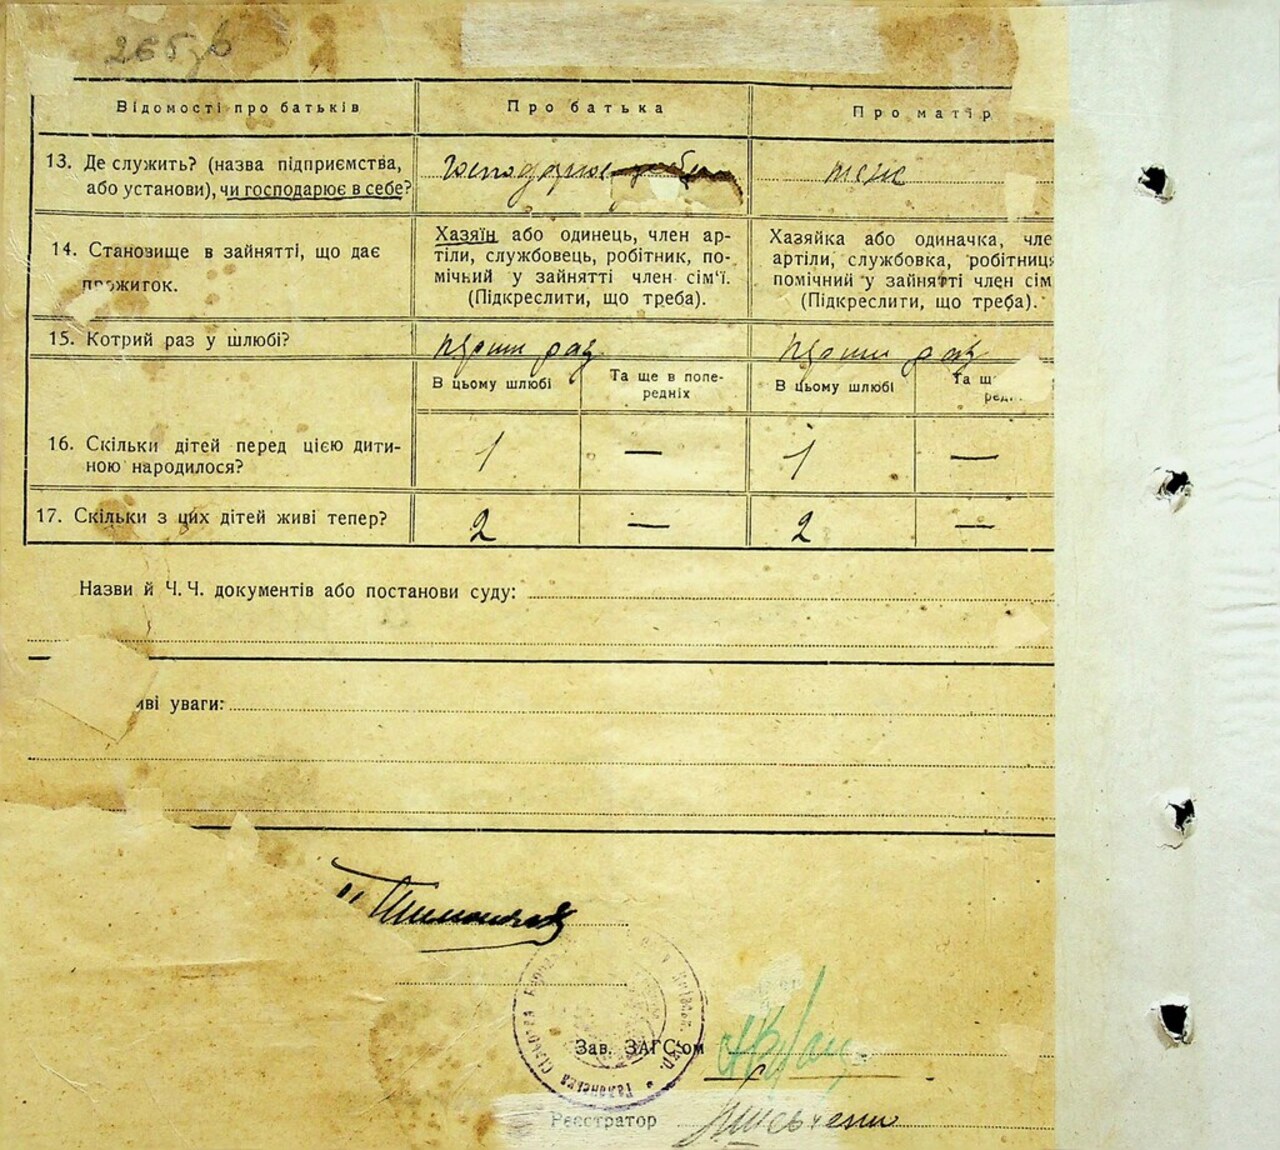 Відомості про батьків
Про батька
Про матір
13. Де служить? (назва підприємства, або установи), чи господарює в себе?
Господарює
теж
14. Становище в зайнятті, що дає прожиток.
Хазяїн або одинець, член ар-
тіли, службовець, робітник, по-
мічний у зайнятті член сім'ї.
(Підкреслити, що треба).
Хазяйка або одиначка, чле
артіли, службовка, робітниця
помічний у зайнятті член сім
(Підкреслити, що треба).
15. Котрий раз у шлюбі?
перши раз
перши раз
В цьому шлюбі
Та ще в попе-
редніх
В цьому шлюбі
Та щ
редн
16. Скільки дітей перед цією дити-
ною народилося?
1 — 1 —
17. Скільки з цих дітей живі тепер?
2 — 2 —
Назви й Ч. Ч. документів або постанови суду:
иві уваги:
Зав. ЗАГС'ом
Реєстратор